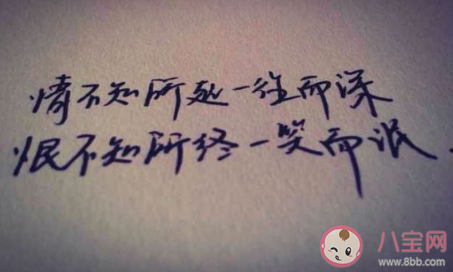 情不知所起一往而深
恨不知所终一笑而泯.
八宝网
www.8bb.com